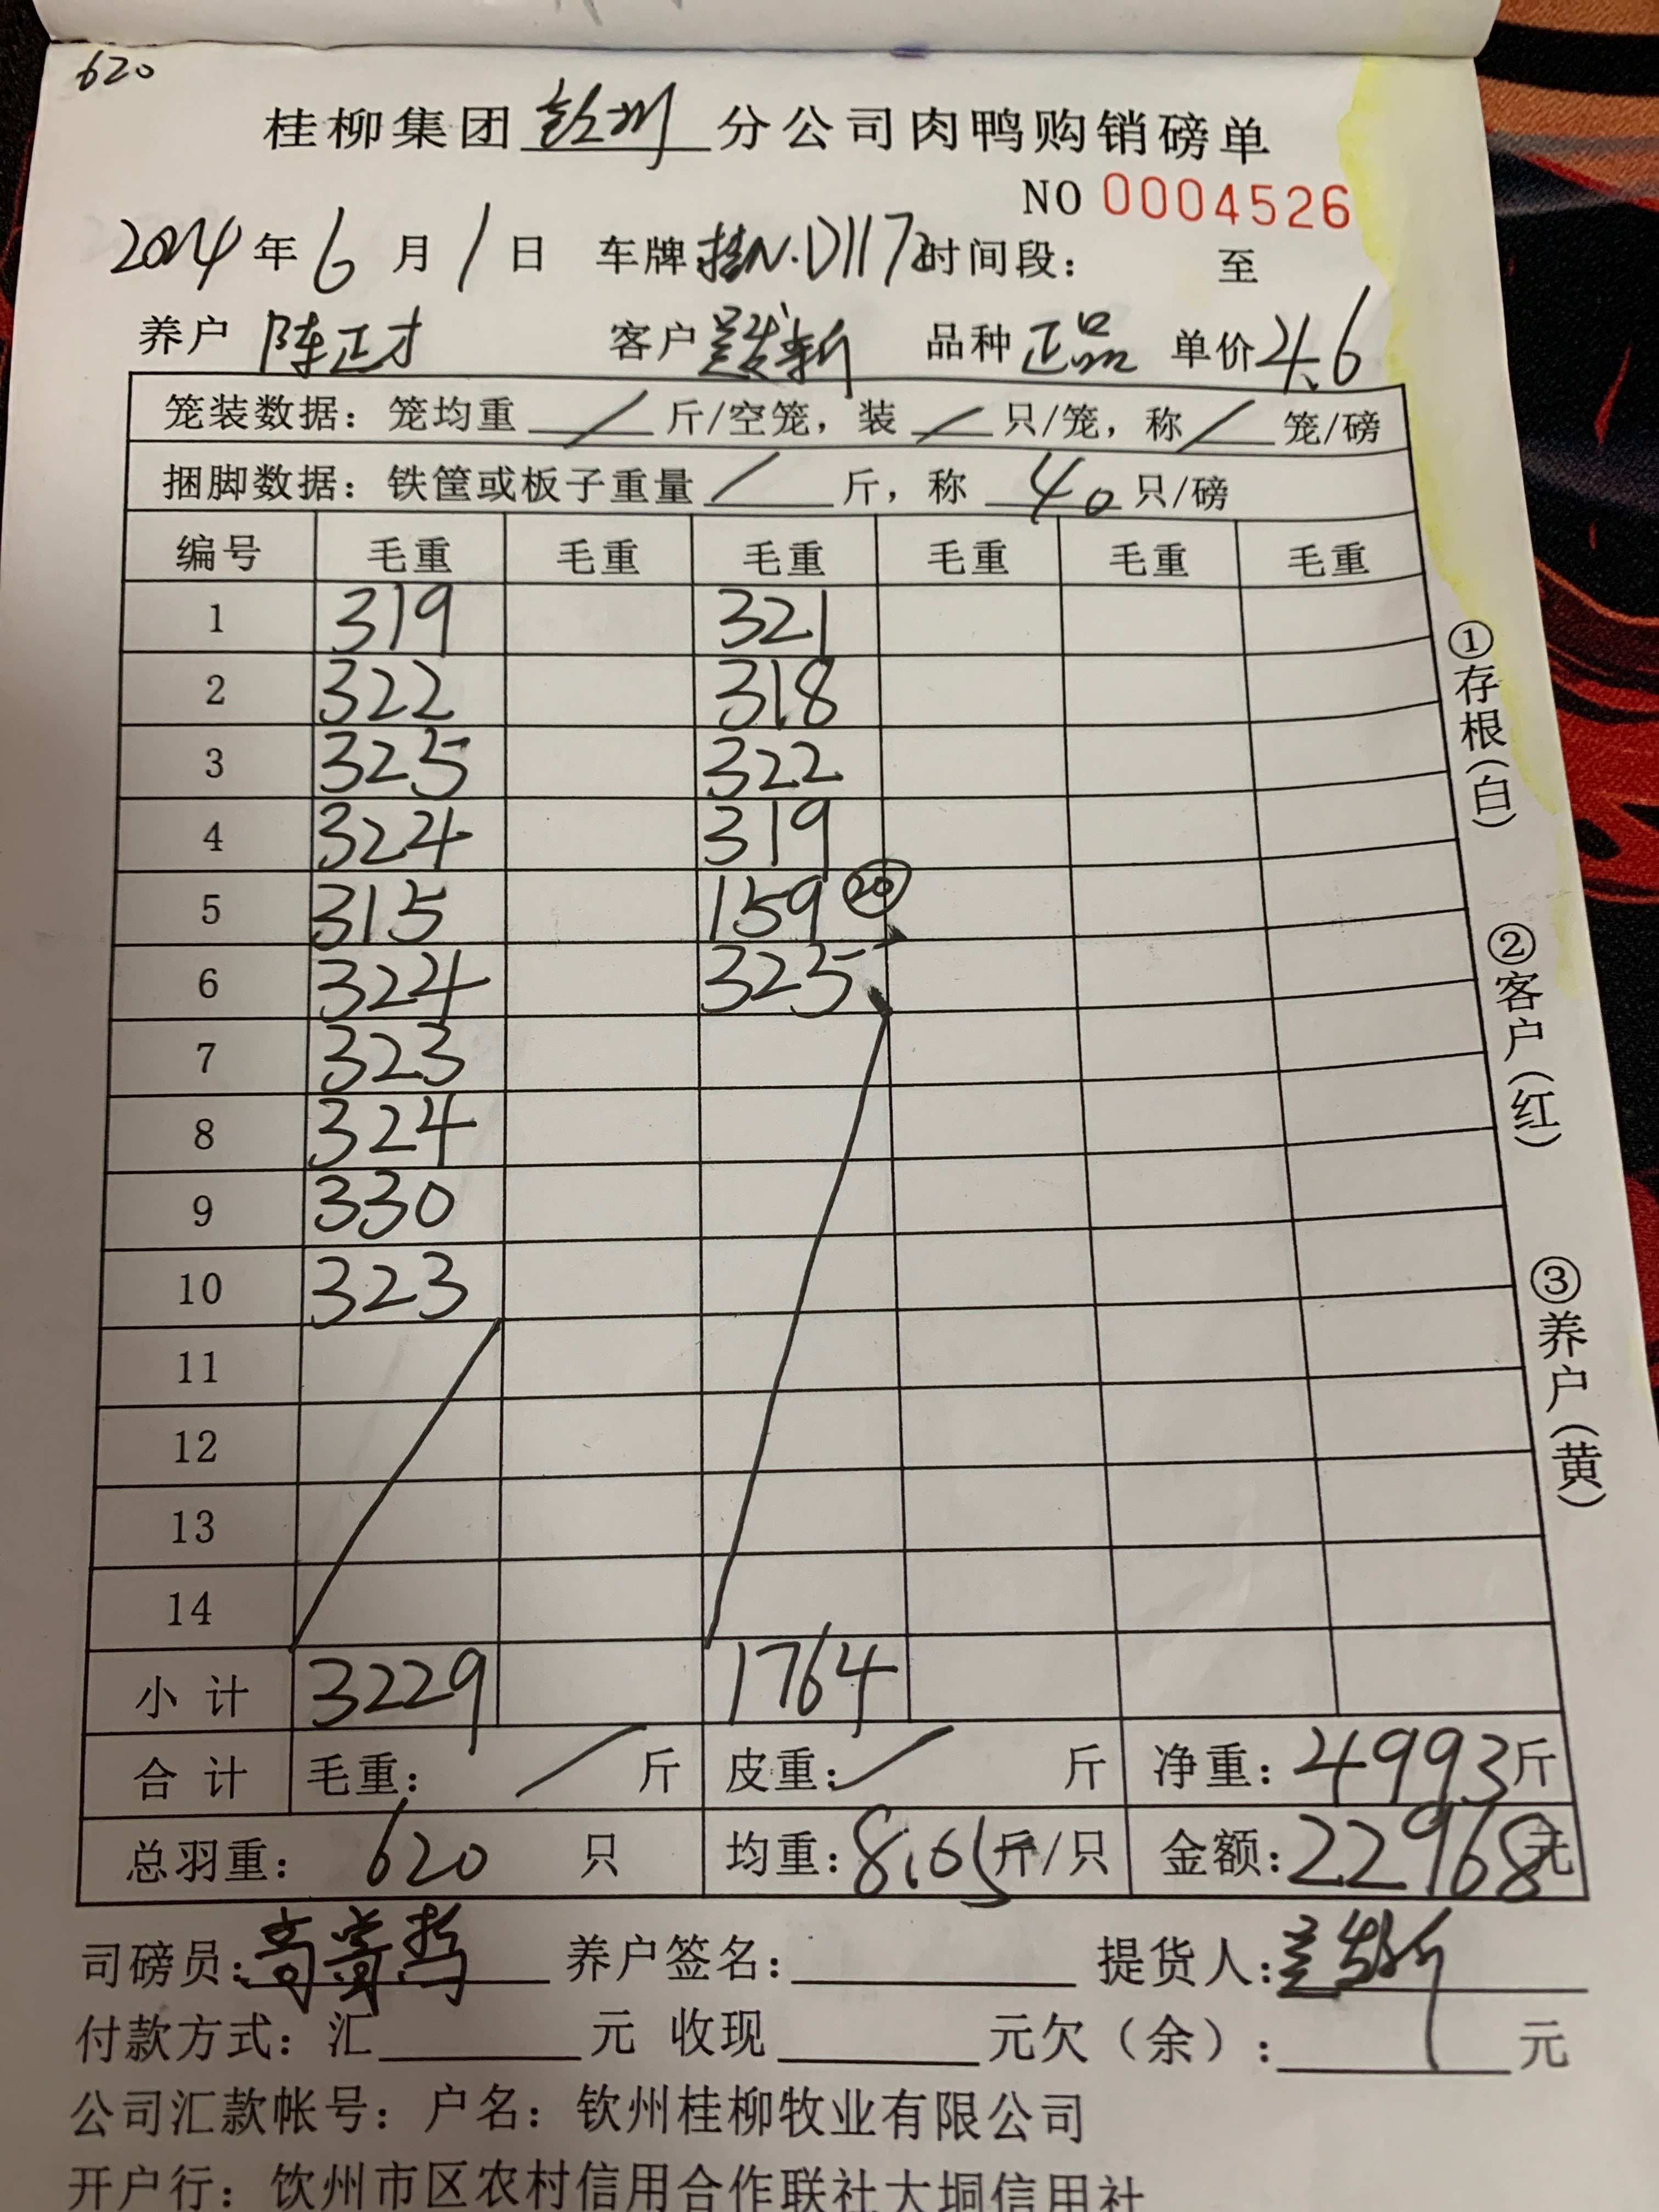 620
桂柳集团钦州分公司肉鸭购销磅单
NO 0004526
2024年6月1日 车牌桂N·D117 时间段: 至
养户 陈正才 客户 新 品种 正品 单价 4.6
笼装数据: 笼均重 / 斤/空笼, 装 / 只/笼, 称 / 笼/磅
捆脚数据: 铁筐或板子重量 / 斤, 称 40 只/磅
编号 毛重 毛重 毛重 毛重 毛重 毛重
1 319 321
2 322 318
3 325 322
4 324 319
5 315 159 ⑳
6 324 325
7 323
8 324
9 330
10 323
11
12
13
14
小计 3229 1764
合计 毛重: / 斤 皮重: / 斤 净重: 4993斤
总羽重: 620 只 均重: 8.05斤/只 金额: 22968元
司磅员: 养户签名: 提货人:
付款方式: 汇 元 收现 元欠(余): 元
公司汇款帐号: 户名: 钦州桂柳牧业有限公司
开户行: 饮州市区农村信用合作联社大垌信用社
①存根(白)
②客户(红)
③养户(黄)